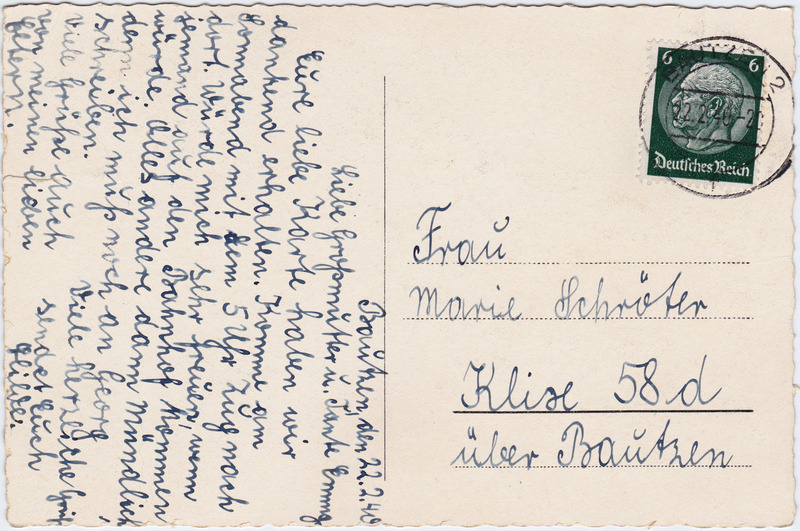 Bautzen, den 22.2.40
Liebe Großmutter u. Tante Emma
Eure liebe Karte haben wir
dankend erhalten. Komme am
Sonnabend mit dem 5 Uhr Zug nach
dort. Würde mich sehr freuen, wenn
jemand auf den Bahnhof kommen
würde. Alles andere dann mündlich
denn ich muß noch an Georg
schreiben.
Viele herzliche Grüße
sendet Euch
Hilde.
Viele Grüße auch
von meinen lieben
Eltern.
BAUTZEN 2
22.2.40
6 6
Deutsches Reich
Frau
Marie Schröter
Klix 58 d
über Bautzen